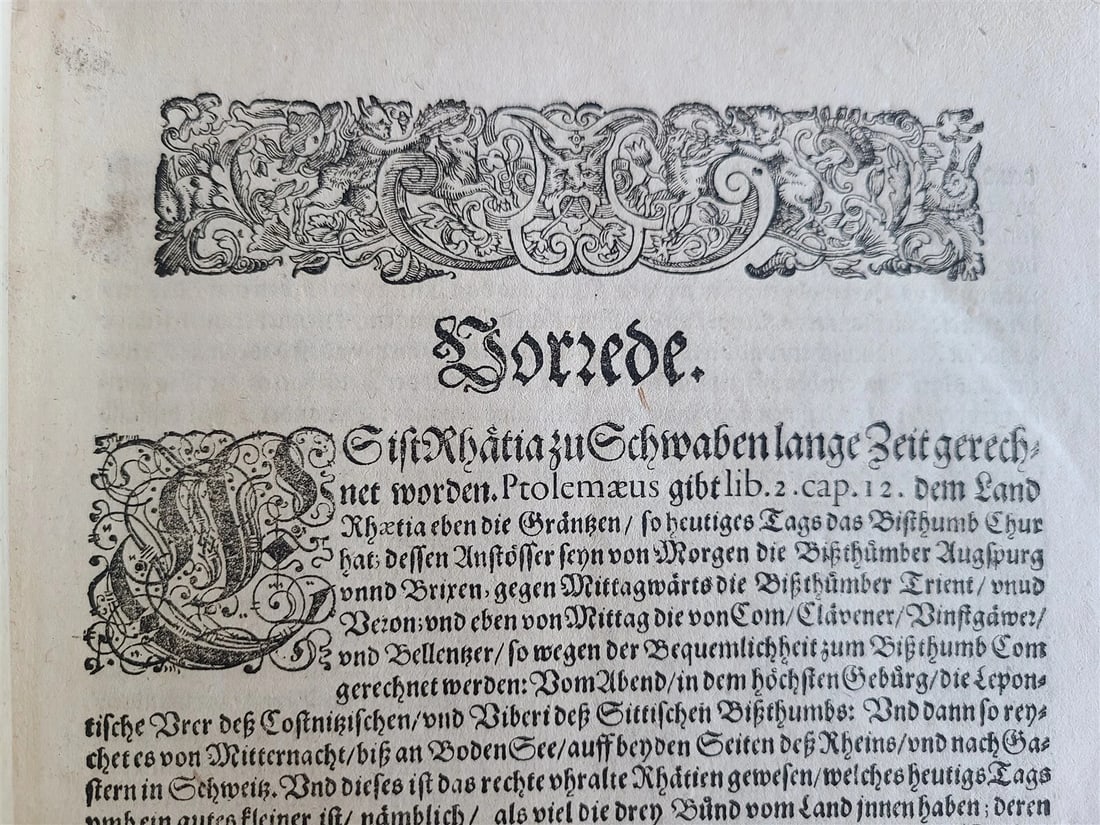 Vorrede.
ES ist Rhätia zu Schwaben lange Zeit gerech-
net worden. Ptolemæus gibt lib. 2. cap. 12. dem Land
Rhætia eben die Gräntzen / so heutiges Tags das Bisthumb Chur
hat; dessen Anstösser seyn von Morgen die Bißthůmber Augspurg
vnnd Brixen, gegen Mittagwärts die Bißthůmber Trient / vnud
Veron; vnd eben von Mittag die von Com / Clävener / Vinstgäwer /
vnd Bellentzer / so wegen der Bequemlichheit zum Bißthumb Com
gerechnet werden: Vom Abend / in dem höchsten Gebůrg / die Lepon-
tische Vrer deß Costnitzischen / vnd Viberi deß Sittischen Bißthumbs: Vnd dann so rey-
chet es von Mitternacht / biß an BodenSee / auff beyden Seiten deß Rheins / vnd nach Ga-
stern in Schweitz. Vnd dieses ist das rechte vhralte Rhätien gewesen / welches heutigs Tags
vmb ein gutes kleiner ist / nämblich / als viel die drey Bůnd vom Land jnnen haben; deren